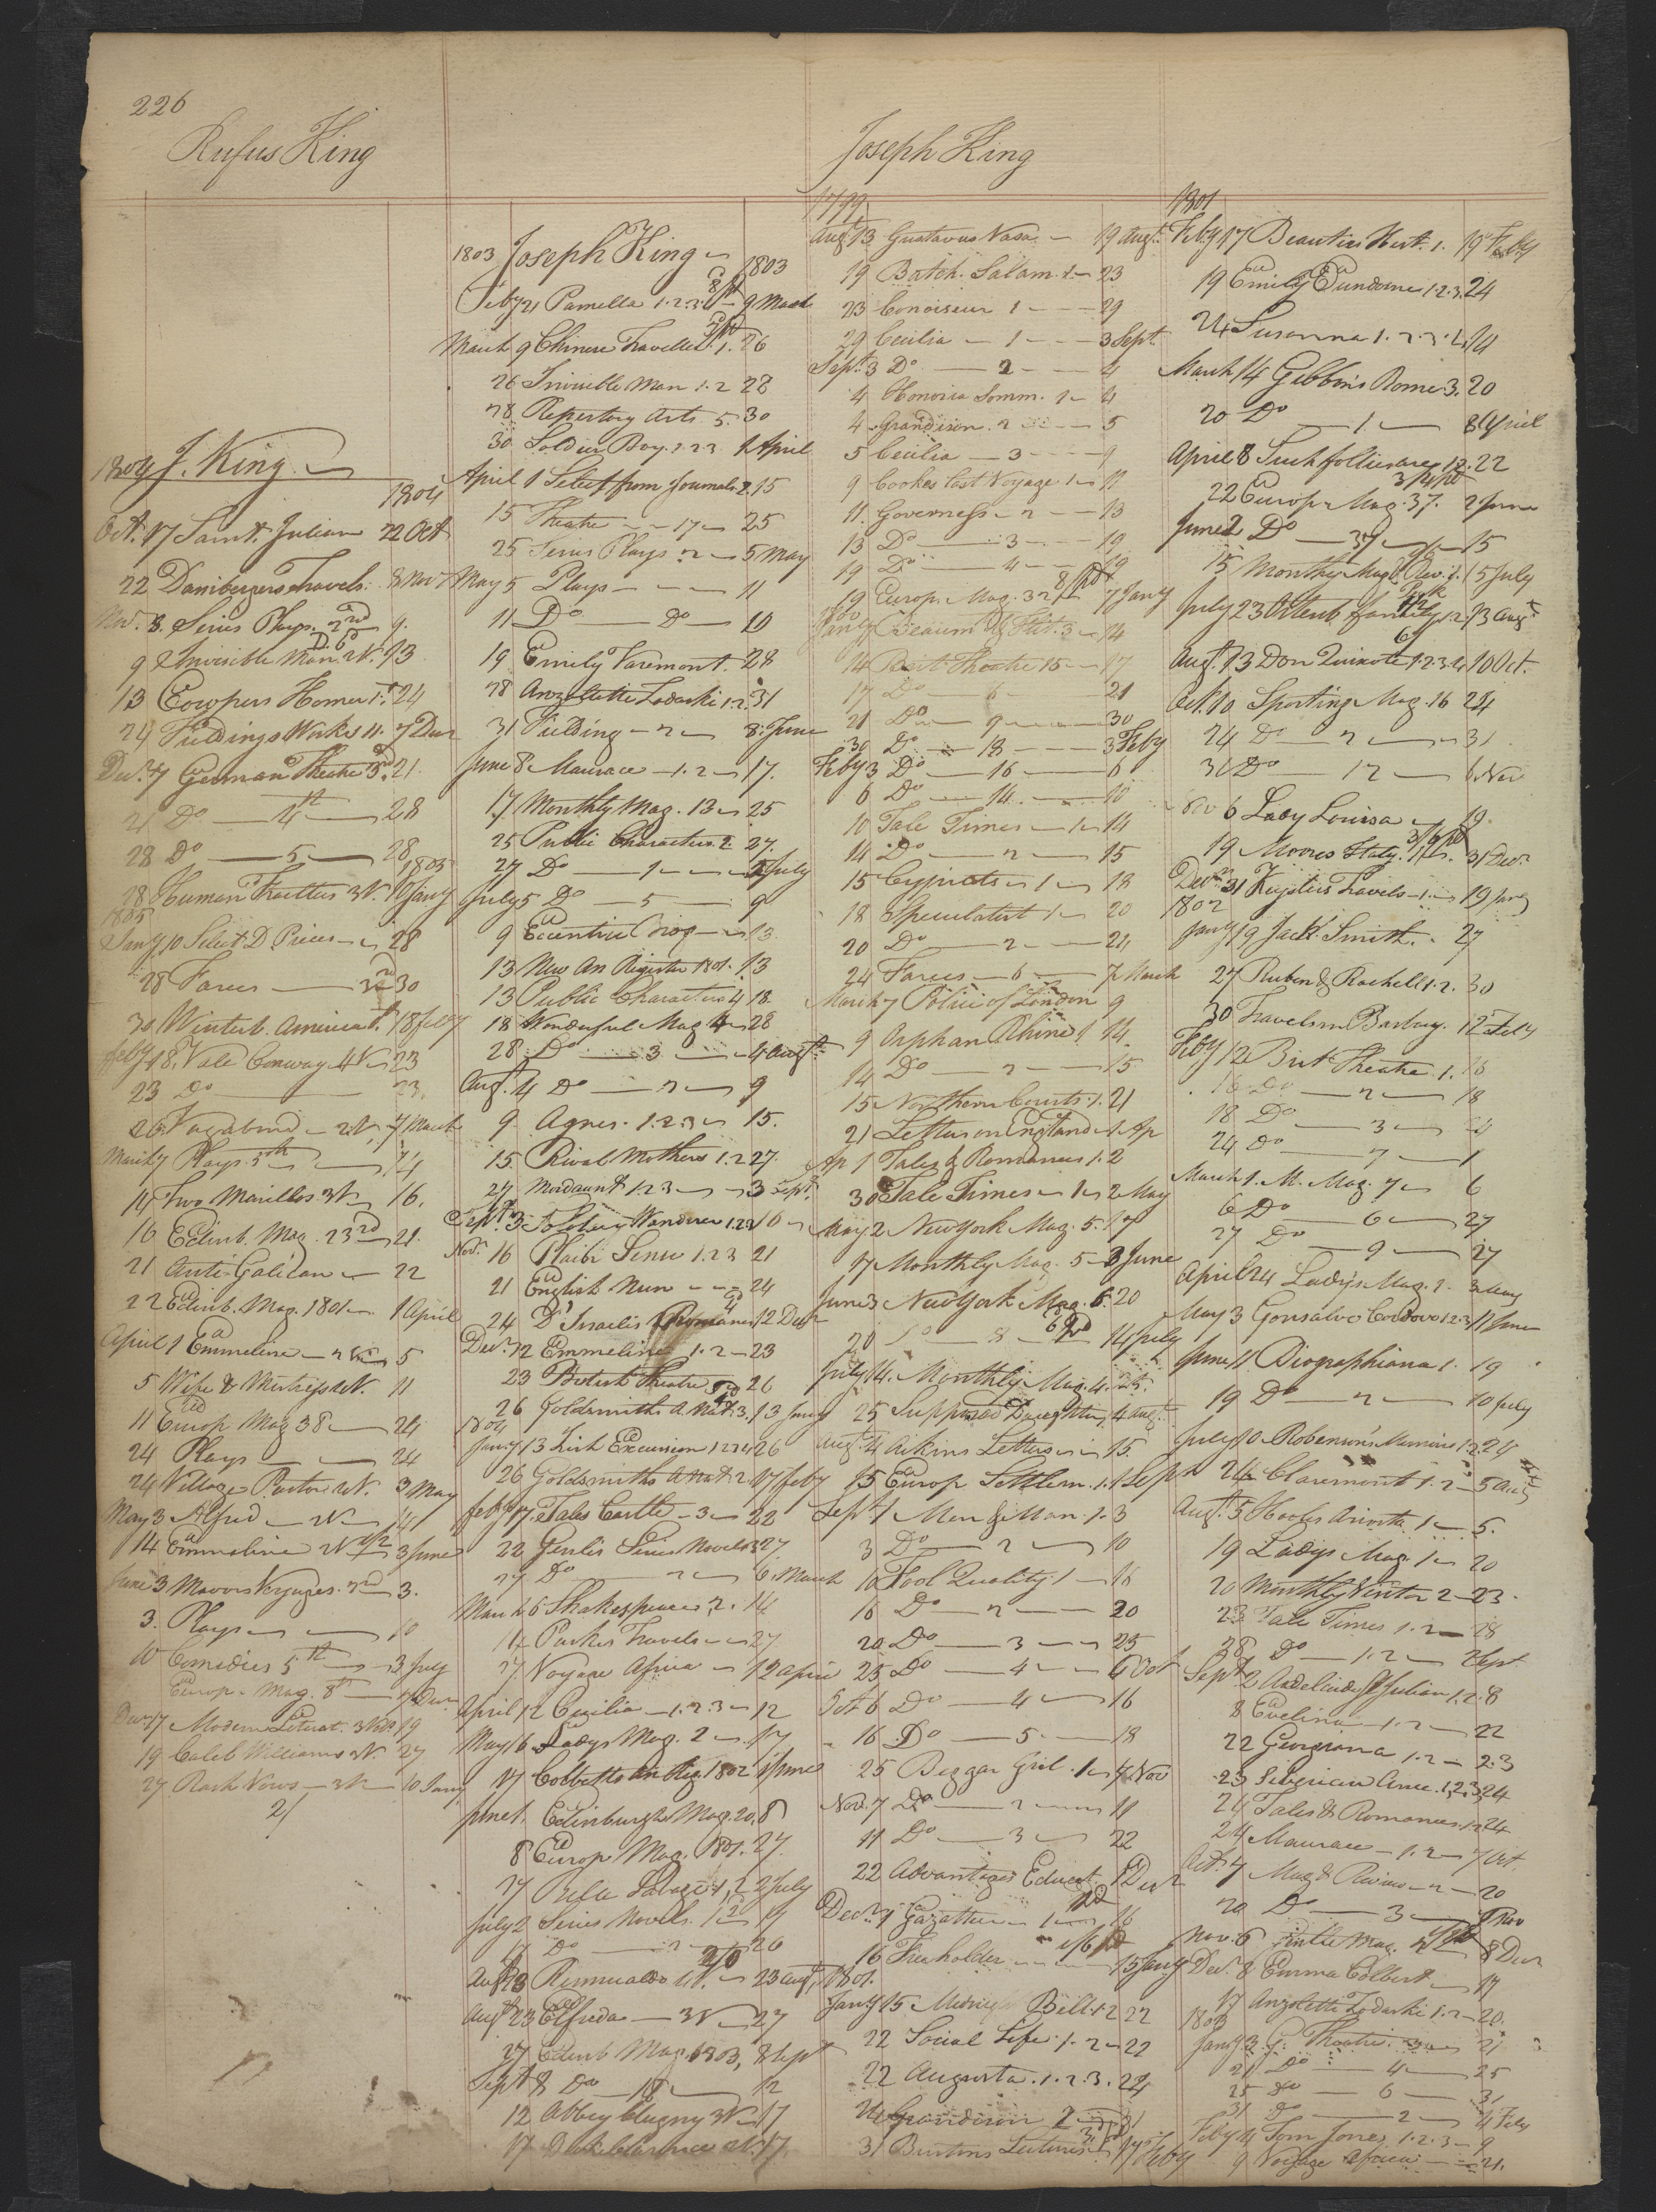 226
Rufus King
Joseph King
1804 J. King
1804
Oct. 17 Saint Julian 22 Oct
22 Dambergers Travels 8 Nov
Nov. 8. Series Plays. 2nd 9.
9 Invisible Man. 2V. 13
13 Cowpers Homer 1st 24
24 Fieldings Works 11. 7 Decr
Decr. 7 German Theatre 3d. 21.
21 Do 4th 28
28 Do 5 28
1805
28 Human Frailties 3V. 10 Jany
1805
Jany 10 Select D Pieces 28
28 Farces 30
30 Winterb. America 1st. 18 Feby
Feby 18. Vale Conway 4V 23
23 Do 23.
26 Vagabond 2V. 7 March
March 7 Plays 5th 14
14 Two Marillos 3V 16.
16 Edinb. Mag. 23rd 21.
21 Anti-Galican 22
22 Edinb. Mag. 1801 1 April
April 1 Emmeline 5
5 Wife & Mistress 2V. 11
11 Europ Mag 38 24
24 Plays 24
24 Village Pastor 2V. 3 May
May 3 Alfred 2V 14
14 Emmeline 2V 3 June
June 3 Mavors Voyages. 2nd 3.
3. Plays 10
10 Comedies 5th 3 July
Europ. Mag. 8th 7 Decr
Decr 17 Modern Literat. 3 Vols 19
19 Caleb Williams 2V. 27
27 Rash Vows 3V 10 Jany
21
1803 Joseph King 1803
Feby 21 Pamella 1.2.3. 9 March
March 9 Chinese Traveller. 1. 26
26 Invisible Man 1.2 28
28 Repertory Arts 5. 30
30 Soldier Boy. 1 2 3 1 April
April 1 Select from Journals 2. 15
15 Theatre 17 25
25 Series Plays 2 5 May
May 5 Plays 11
11 Do Do 19
19 Emily Varmont. 28
28 Anzoletta Zadoski 1.2. 31
31 Fielding 2 8 June
June 8 Maurace 1.2 17.
17 Monthly Mag. 13 25
25 Public Characters 2 27.
27 Do 1 5 July
July 5 Do 5 9
9 Eccentric Biog 13
13 New An Register 1801. 13
13 Public Characters 4 18
18 Wonderful Mag 4 28
28 Do 3 4 Augt
Augt. 4 Do 2 9
9 Agnes. 1.2.3 15.
15 Rival Mothers 1.2 27.
27 Mordaunt 1.2 3 3 Sept.
Sept. 3 Solitary Wanderer 1.2.3 16
Nov. 16 Plaibi Sense 1.2 3 21
21 English Nun 24
24 D'Israelis Romances 12 Decr
Decr. 12 Emmeline 1.2 23
23 British Theatre 26
26 Goldsmiths A. Nat. 3. 13 Jany
1804
Jany 13 Irish Excursion 1 2 3 4 26
26 Goldsmiths A Nat. 2 17 Feby
Feby 17 Tales Castle 3 22
22 Genlis Series Novels 27
27 Do 2 6 March
March 6 Shakespeare 2. 14
14 Parkes Travels 27.
27 Voyage Africa 12 April
April 12 Cecilia 1.2.3 12
May 6 Ladys Mag. 2 17
17 Cobbetts An Reg. 1802 1 June
June 1. Edinburgh Mag. 20. 8
8 Europ Mag. 1801. 27.
27 2 July
July 2 Series Novels. 1 17
17 Do 2 26
Augt 23 Elfrida 3V 27
27 Edinb Mag. 1803, 8 Sept
Sept 8 Do 18 12
12 Abbey Clugny 3V 17
17 2V. 17
1799
Augt 13 Gustavus Vasa 19 Augt.
19 Batch. Salam. 2 23
23 Conoiseur 1 29
29 Cecilia 1 3 Sept.
Sept. 3 Do 2 4
4 Honoria Somm. 1 4
4 Grandison. 2 5
5 Cecilia 3 9
9 Cookes last Voyage 1 11
11. Governess 2 13
13 Do 3 19
19 Do 4 19
19 Europ. Mag. 32 7 Jany
1800
Jany 7 Beaum & Flet. 3 14
14 Brit. Theatre 15 17
17 Do 6 21
21 Do 9 30
30 Do 18 3 Feby
Feby 3 Do 16 6
6 Do 14. 10
10 Tale Times 1 14
14 Do 2 15
15 Cypriots 1 18
18 Speculatist 1 20
20 Do 2 24
24 Farces 6 7 March
March 7 Police of London 9
9 Orphan Rhine 1 14.
14 Do 2 15
15 Northern Courts. 1. 21
21 Letters on England 1 Ap
Ap 1 Tales & Romances 1.2
30 Tale Times 1 2 May
May 2 New York Mag. 5. 17
7 Monthly Mag. 5 3 June
June 3 New York Mag. 6. 20
20 Do 8 14 July
July 14. Monthly Mag. 4. 25.
25 Supposed Daughter, 4 Augt.
Augt. 4 Aikins Letters 15.
15 Europ Settlem. 1. 1 Sept
Sept 1 Men & Man 1. 3
3 Do 2 10
10 Fool Quality 1 16
16 Do 2 20
20 Do 3 25
25 Do 4 6 Oct
Oct 6 Do 4 16
16 Do 5. 18
25 Beggar Girl. 1 7 Nov
Nov. 7 Do 2 11
11 Do 3 22
22 Advantages Educat. 1 Decr
Decr 1 Gazatteer 1 16
16 Freeholder 15 Jany
1801.
Jany 15 Midnight Bell 1.2 22
22 Social Life. 1. 2 22
22 Augusta. 1.2.3. 24
24 Grandison 2 31
31 Buttons Lectures 17 Feby
1801
Feby 17 Beauties Hist. 1. 19 Feby
19 Emily Dundorne 1.2.3. 24
24 Susanna 1.2.3.4. 14
March 14 Gibbins Rome. 3. 20
20 Do 1. 8 April
April 8 Such follies are 1.2. 22
22 Europ Mag. 37. 2 June
June 2 Do 37 15
15 Monthy Mag & Rev. 1. 15 July
July 23 Altenb. family 1.2. 13 Augt
Augt. 13 Don Quixote 1.2.3.4. 10 Oct.
Oct. 10 Sporting Mag. 16 24
24 Do 2 31
31 Do 12 6. Nov
Nov 6 Lady Louisa 19.
19 Moores Italy. 1 31 Decr.
Decr. 31 Keyslers Travels 1. 19 Jany
1802
Jany 19 Jack Smith. 27
27 Reuben & Rachell 1.2. 30
30 Travels in Barbary. 12 Feby
Feby 12 Brit Theatre. 1. 16
16 Do 2 18
18 Do 3 24
24 Do 7 1
March 1. M. Mag. 7 6
6 Do 6 27
27 Do 9 27
April 24 Ladys Mag. 1. 3 May
May 3 Gonsalvo Cordova 1.2.3 11 June
June 11 Biographiana 1. 19
19 Do 2 10 July
July 10 Robinson's Memoirs 1.2. 24
24 Claremont 1.2 5 Augt
Augt. 5 Hooles Ariosto 1 5.
19 Ladys Mag. 1 20
20 Monthly Visitor 2 23.
23 Tale Times 1.2 28
28 Do 1.2 2 Sept
Sept 2 Andelinda & Julian 1.2. 8
8 Evelina 1.2 22
22 Georgiana 1.2 23
23 Siberian Anec. 1,2,3, 24
24 Tales & Romances. 1.2 24
24 Maurace 1.2 7 Oct.
Oct. 7 Mag & Review 2 20
20 Do 3 6 Nov
Nov. 6 Mag. 8 Decr
Decr. 8 Emma Colbert 17
17 Anzoletta Zadaski 1.2 20.
1803
Jany 3 G. Theatre. 3 21
21 Do 4 25
25 Do 6 31
31 Do 2 4 Feby
Feby 4 Tom Jones 1.2.3 9
9 Voyage Africa 21.